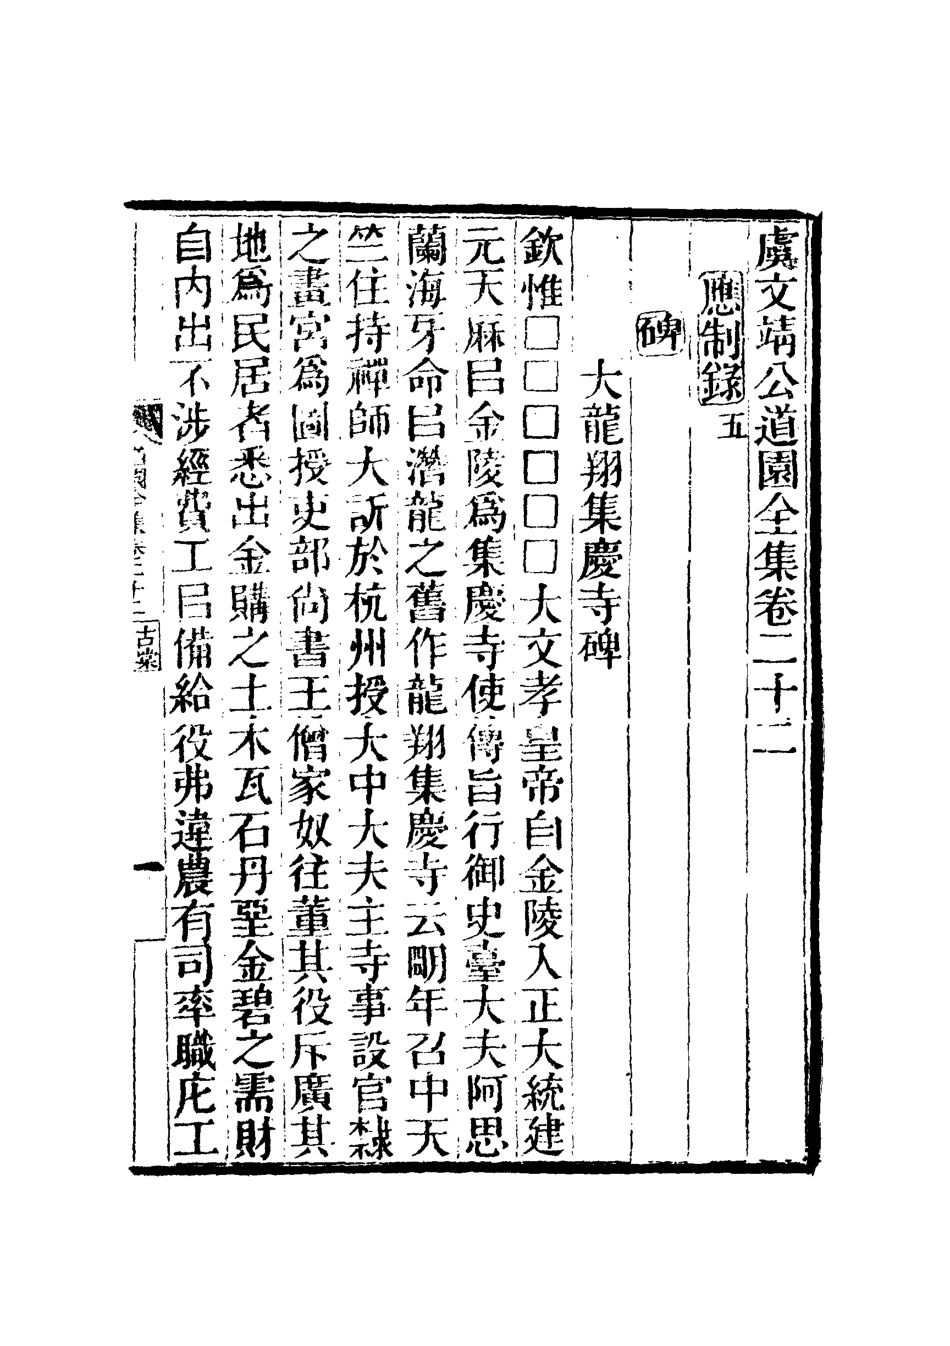 虞文靖公道園全集卷二十二
應制錄五
碑
大龍翔集慶寺碑
欽惟□□□□□□大文孝皇帝自金陵入正大統建
元天厤㠯金陵爲集慶寺使傳旨行御史臺大夫阿思
蘭海牙命㠯潛龍之舊作龍翔集慶寺云朙年召中天
竺住持禪師大訢於杭州授大中大夫主寺事設官隸
之畫宮爲圖授吏部尚書王僧家奴往董其役斥廣其
地爲民居者悉出金購之土木瓦石丹堊金碧之需財
自内出不涉經費工㠯備給役弗違農有司率職庀工
道園全集卷二十二
古棠
一